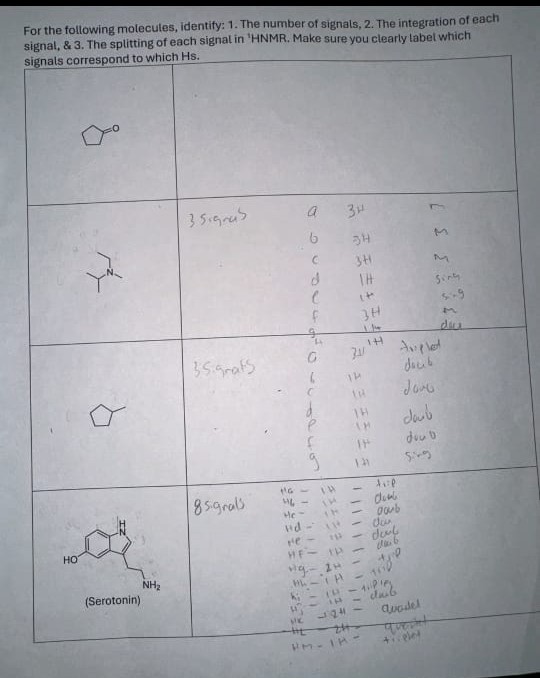 For the following molecules, identify: 1. The number of signals, 2. The integration of each
signal, & 3. The splitting of each signal in ¹HNMR. Make sure you clearly label which
signals correspond to which Hs.
O
3 Signals
a 3H m
b 3H m
c 3H m
d 1H sing
e 1H sing
f 3H m
g
N
3 Signals
a 3H triplet
b 1H doub
c 1H doub
d 1H doub
e 1H doub
f 1H
g 1H sing
8 signals
Ha - 1H - trip
Hb - 1H - doub
Hc - 1H - doub
Hd - 1H -
He - 1H - doub
HF - 1H - doub
Hg - 2H - trip
Hh - 1H - trip
Hi - 1H -
Hj - 1H - doub
Hk - 2H - quadet
HL - 2H -
HM - 1H - triplet
H
N
HO
NH₂
(Serotonin)